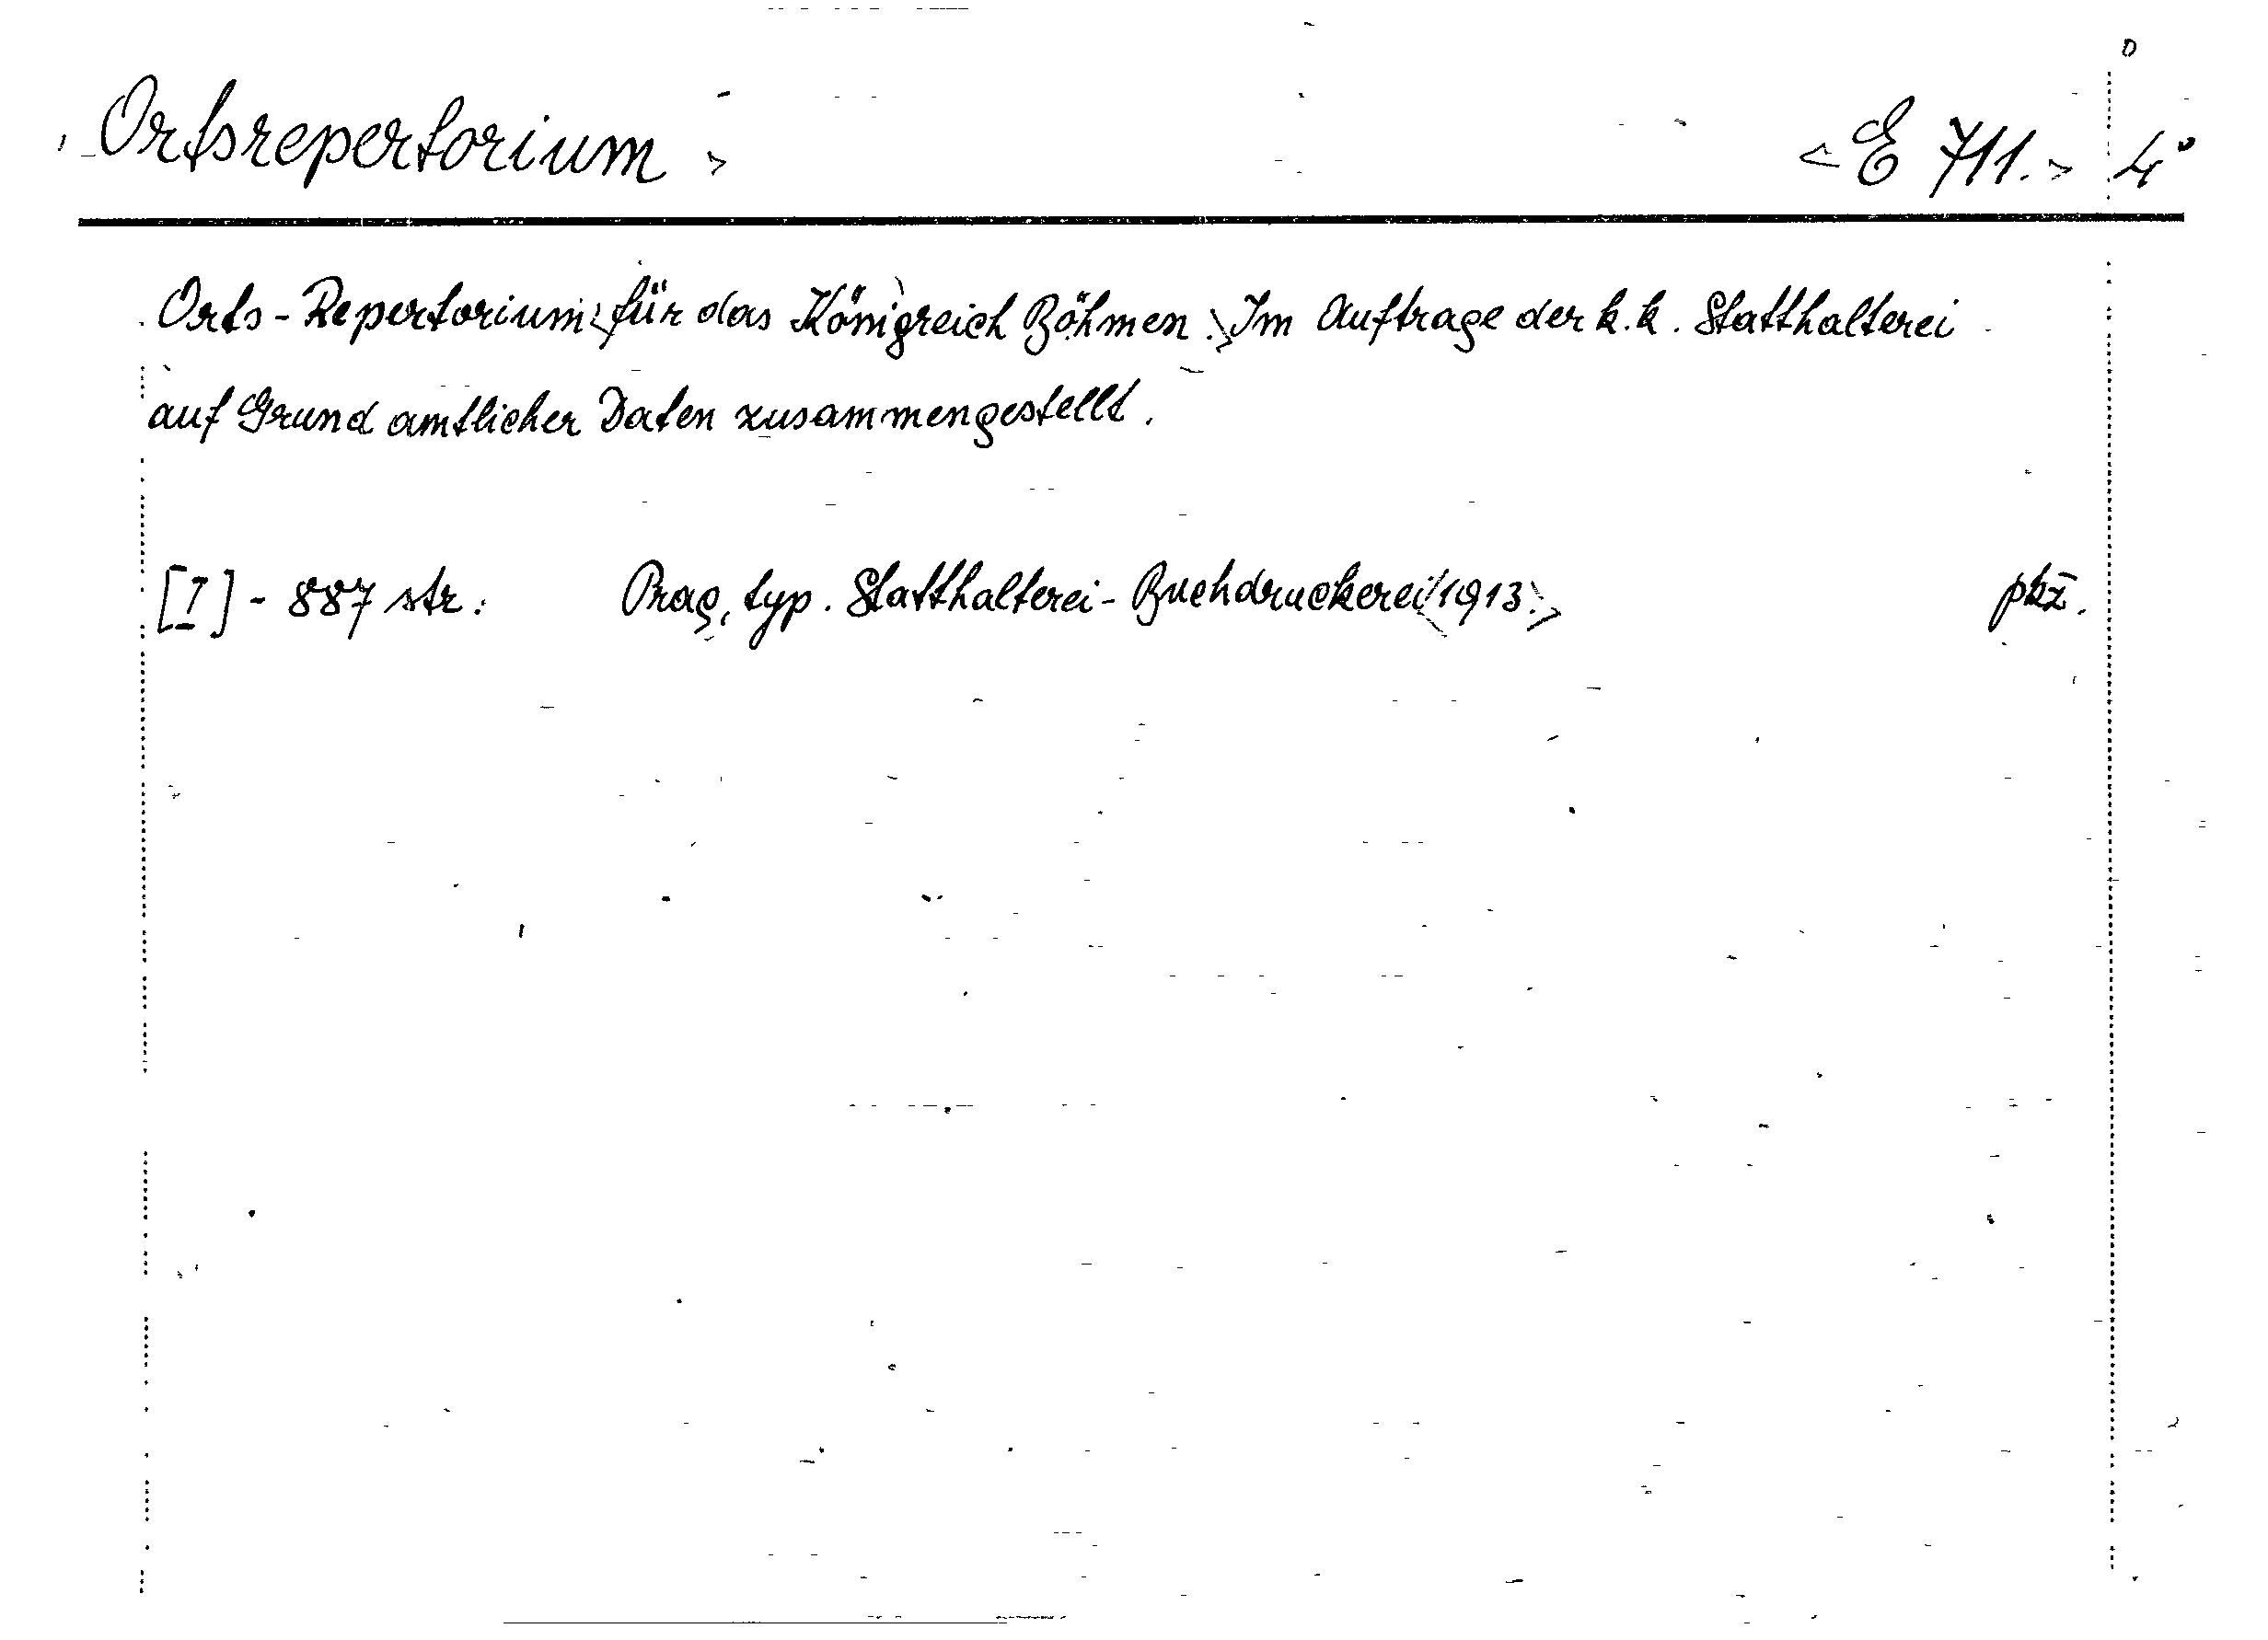 Ortsrepertorium > < E 711. > 4°
Orts-Repertorium <für das Königreich Böhmen.> Im Auftrage der k. k. Statthalterei
auf Grund amtlicher Daten zusammengestellt.
[I] - 887 str. Prag, typ. Statthalterei-Buchdruckerei <1913.> pkž.